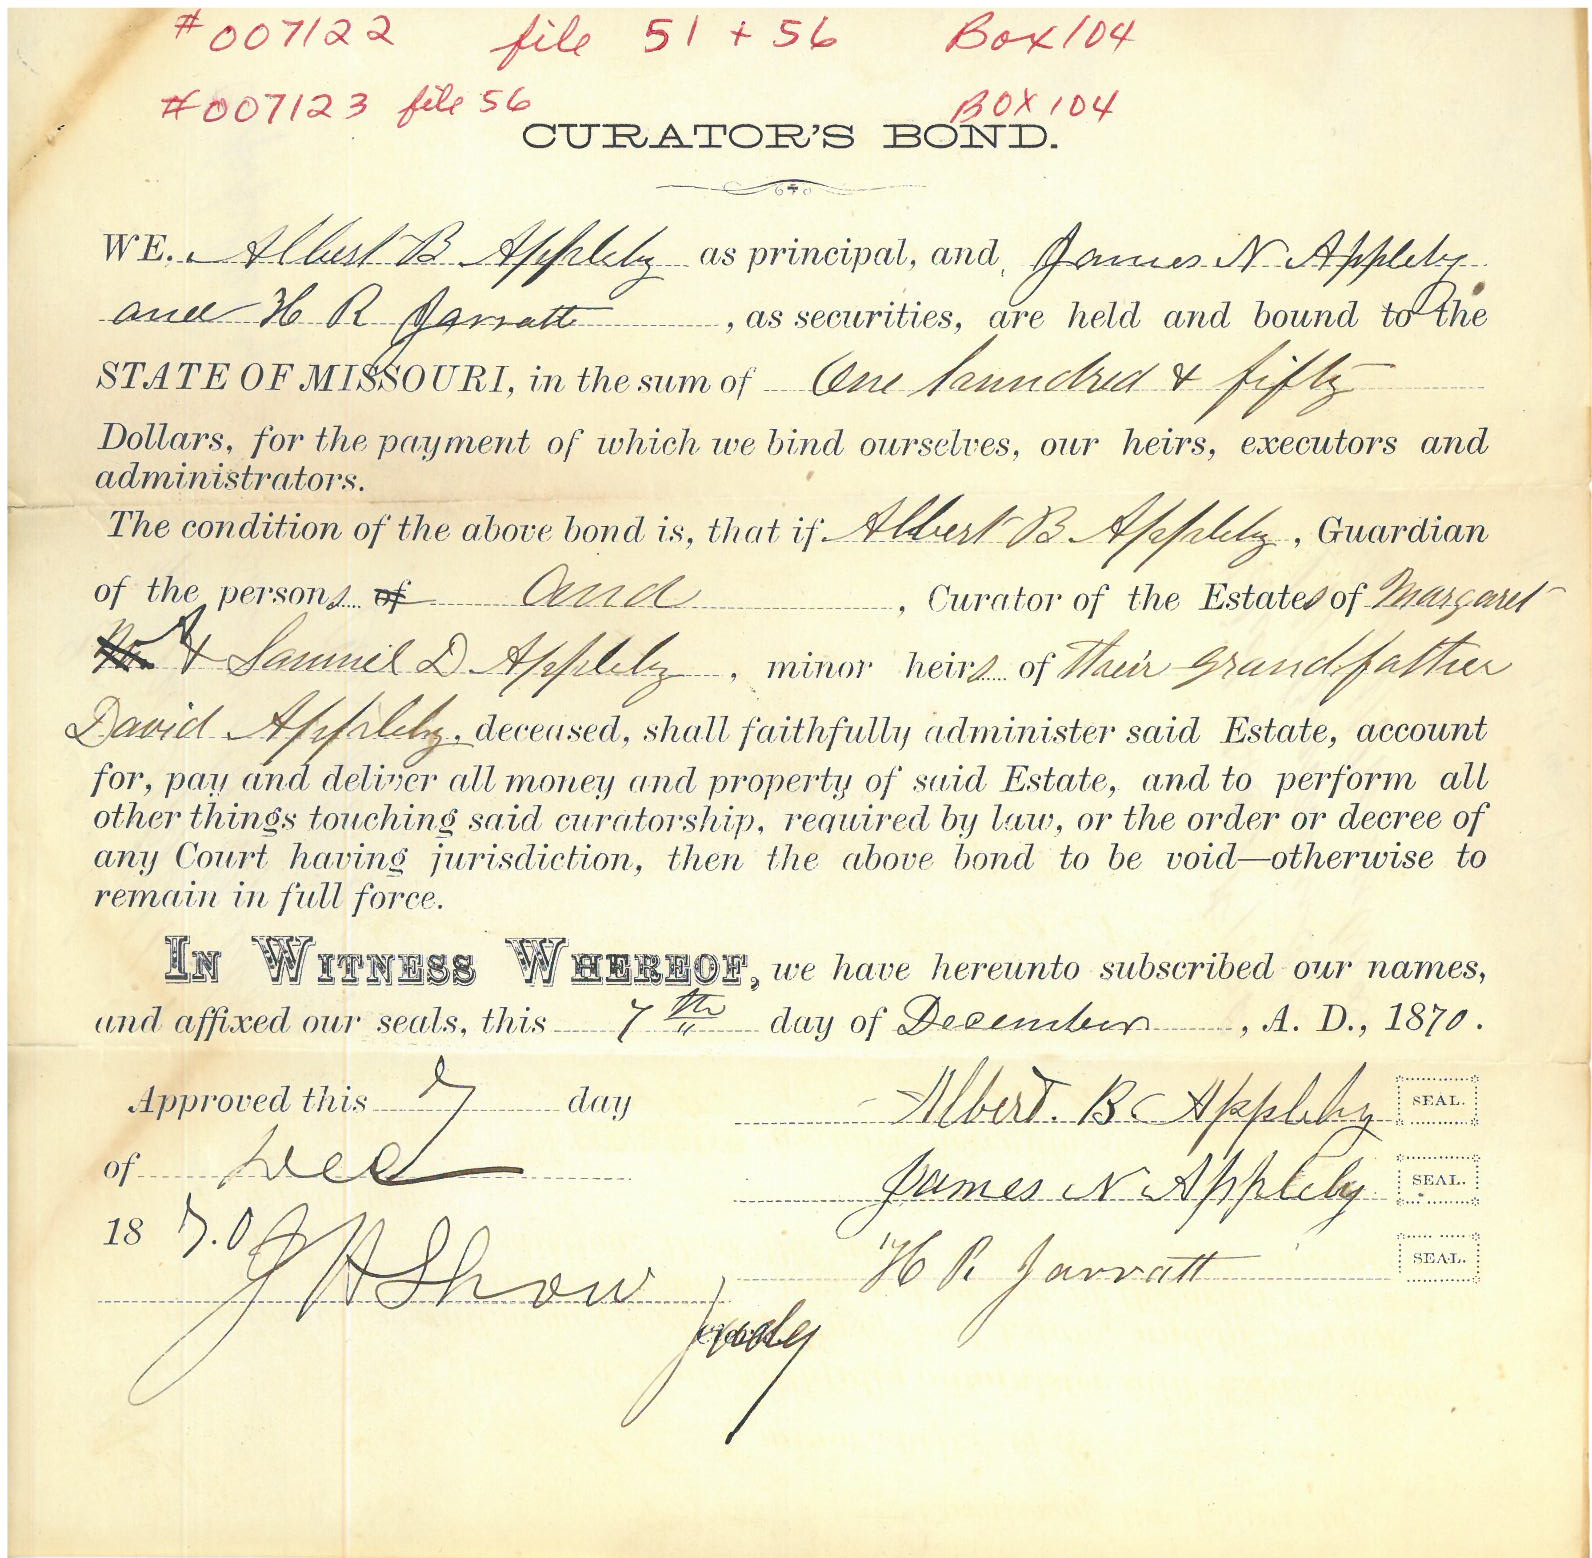 #007122 file 51 + 56 Box 104
#007123 file 56 BOX 104
CURATOR'S BOND.
WE. Albert B Appleby as principal, and, James N Appleby
and H R Jarratt , as securities, are held and bound to the
STATE OF MISSOURI, in the sum of One hundred & fifty
Dollars, for the payment of which we bind ourselves, our heirs, executors and
administrators.
The condition of the above bond is, that if Albert B Appleby , Guardian
of the persons of and , Curator of the Estates of Margaret
A & Samuel D Appleby , minor heirs of their grandfather
David Appleby, deceased, shall faithfully administer said Estate, account
for, pay and deliver all money and property of said Estate, and to perform all
other things touching said curatorship, required by law, or the order or decree of
any Court having jurisdiction, then the above bond to be void—otherwise to
remain in full force.
IN WITNESS WHEREOF, we have hereunto subscribed our names,
and affixed our seals, this 7th day of December , A. D., 1870.
Approved this 7 day
of Dec
1870
J H Show
Judg
Albert. B. Appleby SEAL.
James N Appleby SEAL.
H R Jarratt SEAL.